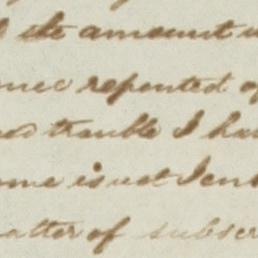 the amount
repented of
trouble I ha
is not
matter of subscr